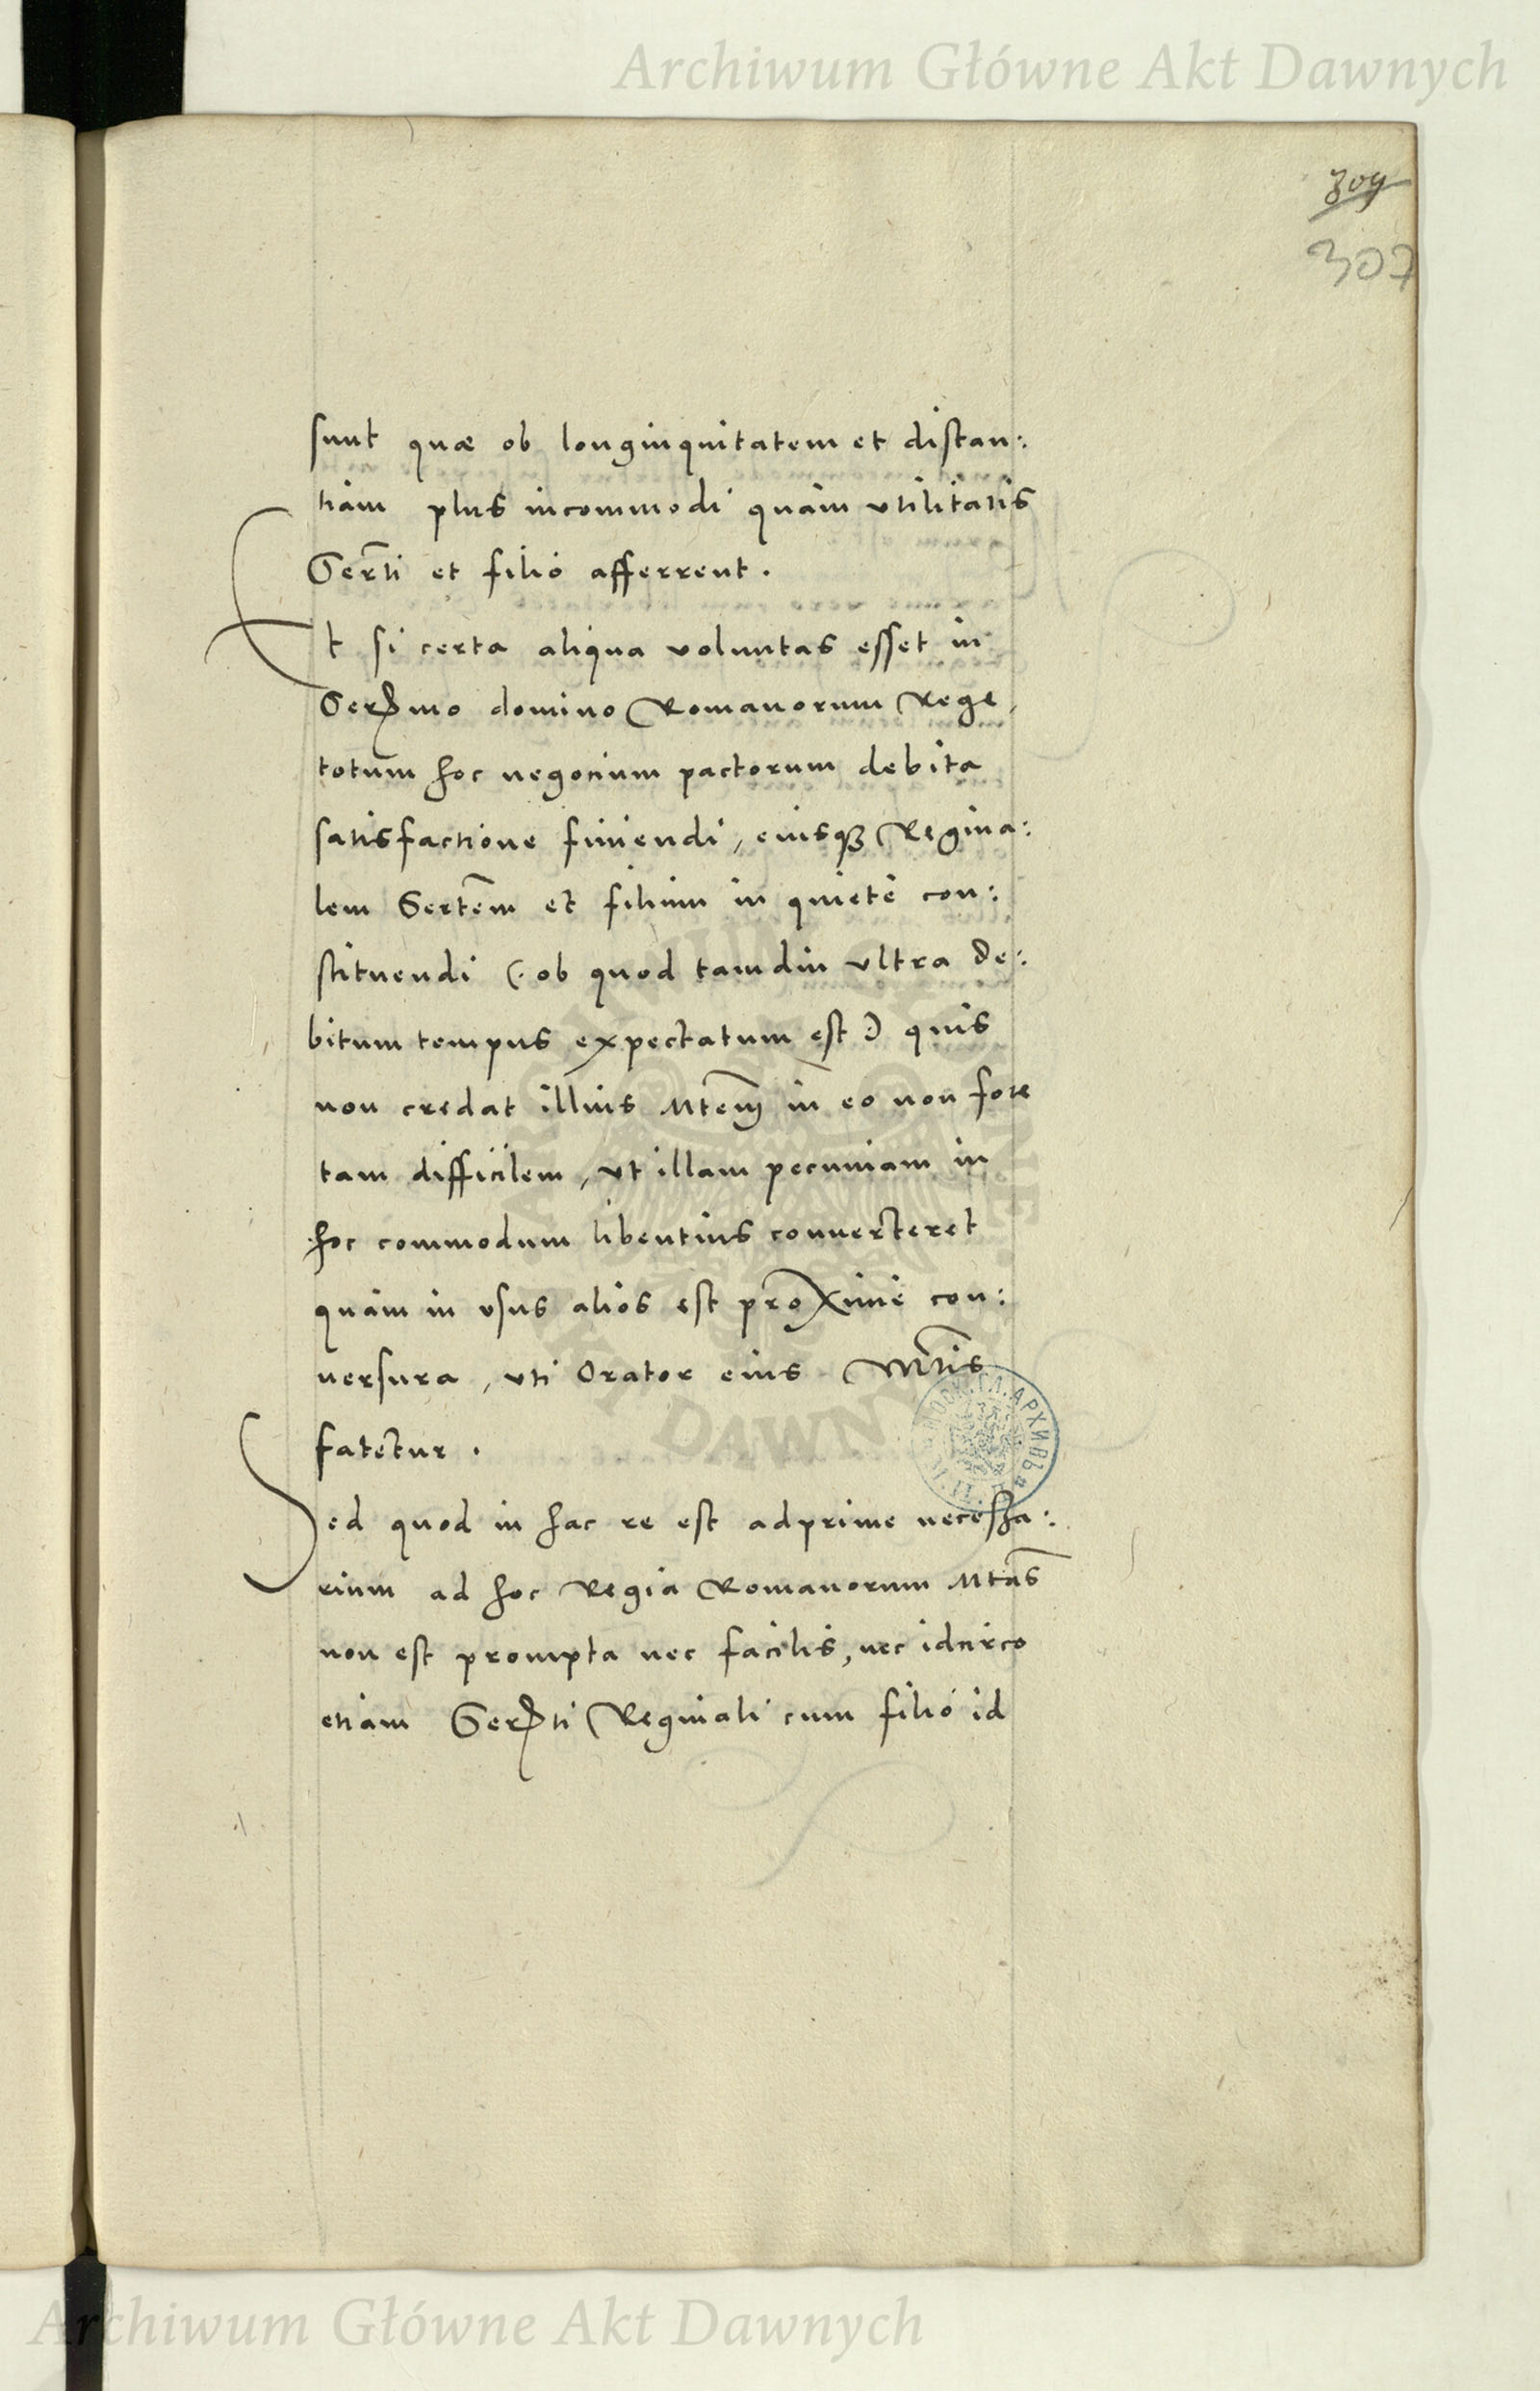 Archiwum Główne Akt Dawnych
309
307
sunt quæ ob longinquitatem et distan:
tiam plus incommodi quàm vtilitatis
Serti et filio afferrent.
Et si certa aliqua voluntas esset in
Sermo domino Romanorum Rege,
totum hoc negocium pactorum debita
satisfactione finiendi, eiusq3 Regina:
lem Sertem et filium in quiete con:
stituendi (: ob quod tamdiu vltra de:
bitum tempus expectatum est :) quis
non credat illius Mtem in eo non fore
tam difficilem, vt illam pecuniam in
hoc commodum libentius conuerteret
quàm in vsus alios est proXime con:
uersura, vti Orator eius Mtis
fatetur.
Sed quod in hac re est adprime necessa:
rium ad hoc Regia Romanorum Mtas
non est prompta nec facilis, nec idcirco
etiam Serti Reginali cum filio id
Archiwum Główne Akt Dawnych